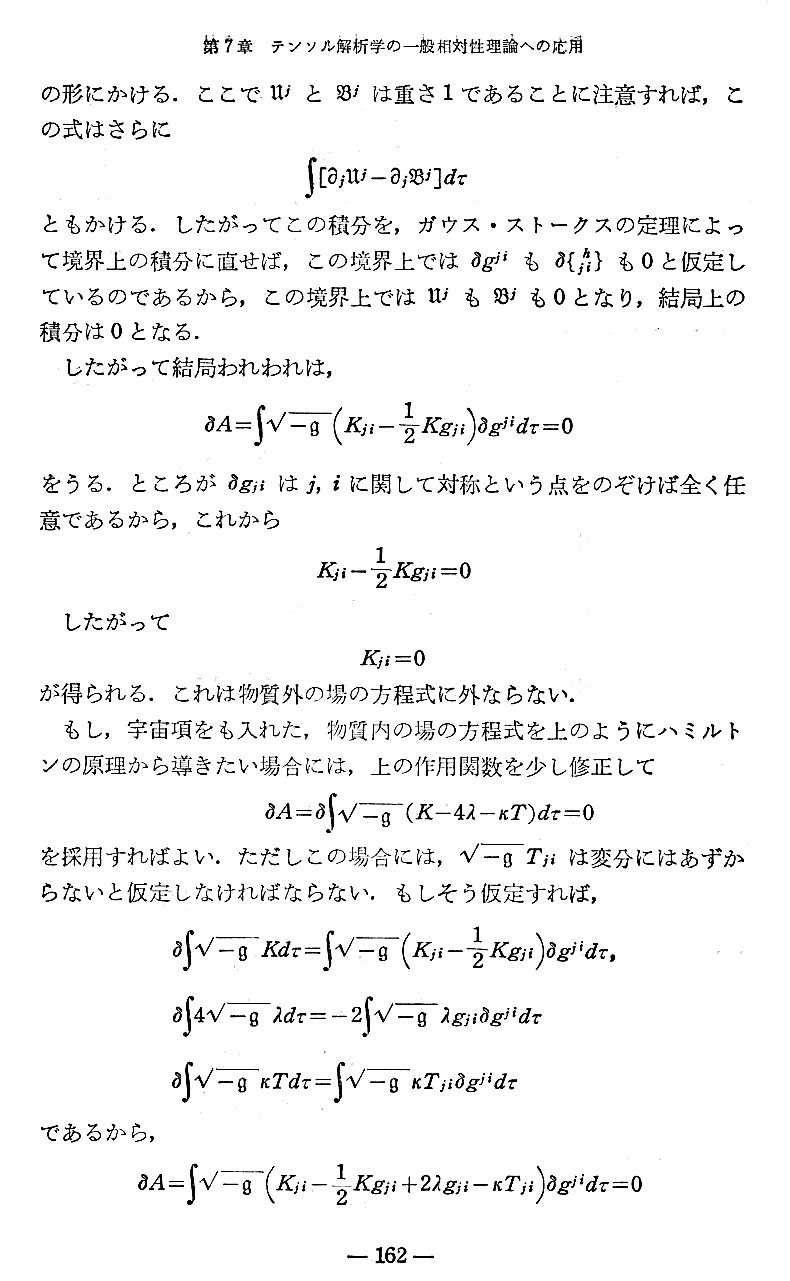 第7章　テンソル解析学の一般相対性理論への応用
の形にかける．ここで 𝔘ʲ と 𝔅ʲ は重さ1であることに注意すれば，こ
の式はさらに
∫[∂ⱼ𝔘ʲ−∂ⱼ𝔅ʲ]dτ
ともかける．したがってこの積分を，ガウス・ストークスの定理によっ
て境界上の積分に直せば，この境界上では ∂gʲⁱ も ∂{ʰⱼᵢ} も0と仮定し
ているのであるから，この境界上では 𝔘ʲ も 𝔅ʲ も0となり，結局上の
積分は0となる．
したがって結局われわれは，
∂A=∫√−𝔤 (Kⱼᵢ−1/2 Kgⱼᵢ)∂gʲⁱdτ=0
をうる．ところが ∂gⱼᵢ は j, i に関して対称という点をのぞけば全く任
意であるから，これから
Kⱼᵢ−1/2 Kgⱼᵢ=0
したがって
Kⱼᵢ=0
が得られる．これは物質外の場の方程式に外ならない．
もし，宇宙項をも入れた，物質内の場の方程式を上のようにハミルト
ンの原理から導きたい場合には，上の作用関数を少し修正して
∂A=∂∫√−𝔤 (K−4λ−κT)dτ=0
を採用すればよい．ただしこの場合には，√−𝔤 Tⱼᵢ は変分にはあずか
らないと仮定しなければならない．もしそう仮定すれば，
∂∫√−𝔤 Kdτ=∫√−𝔤 (Kⱼᵢ−1/2 Kgⱼᵢ)∂gʲⁱdτ,
∂∫4√−𝔤 λdτ=−2∫√−𝔤 λgⱼᵢ∂gʲⁱdτ
∂∫√−𝔤 κTdτ=∫√−𝔤 κTⱼᵢ∂gʲⁱdτ
であるから，
∂A=∫√−𝔤 (Kⱼᵢ−1/2 Kgⱼᵢ+2λgⱼᵢ−κTⱼᵢ)∂gʲⁱdτ=0
— 162 —